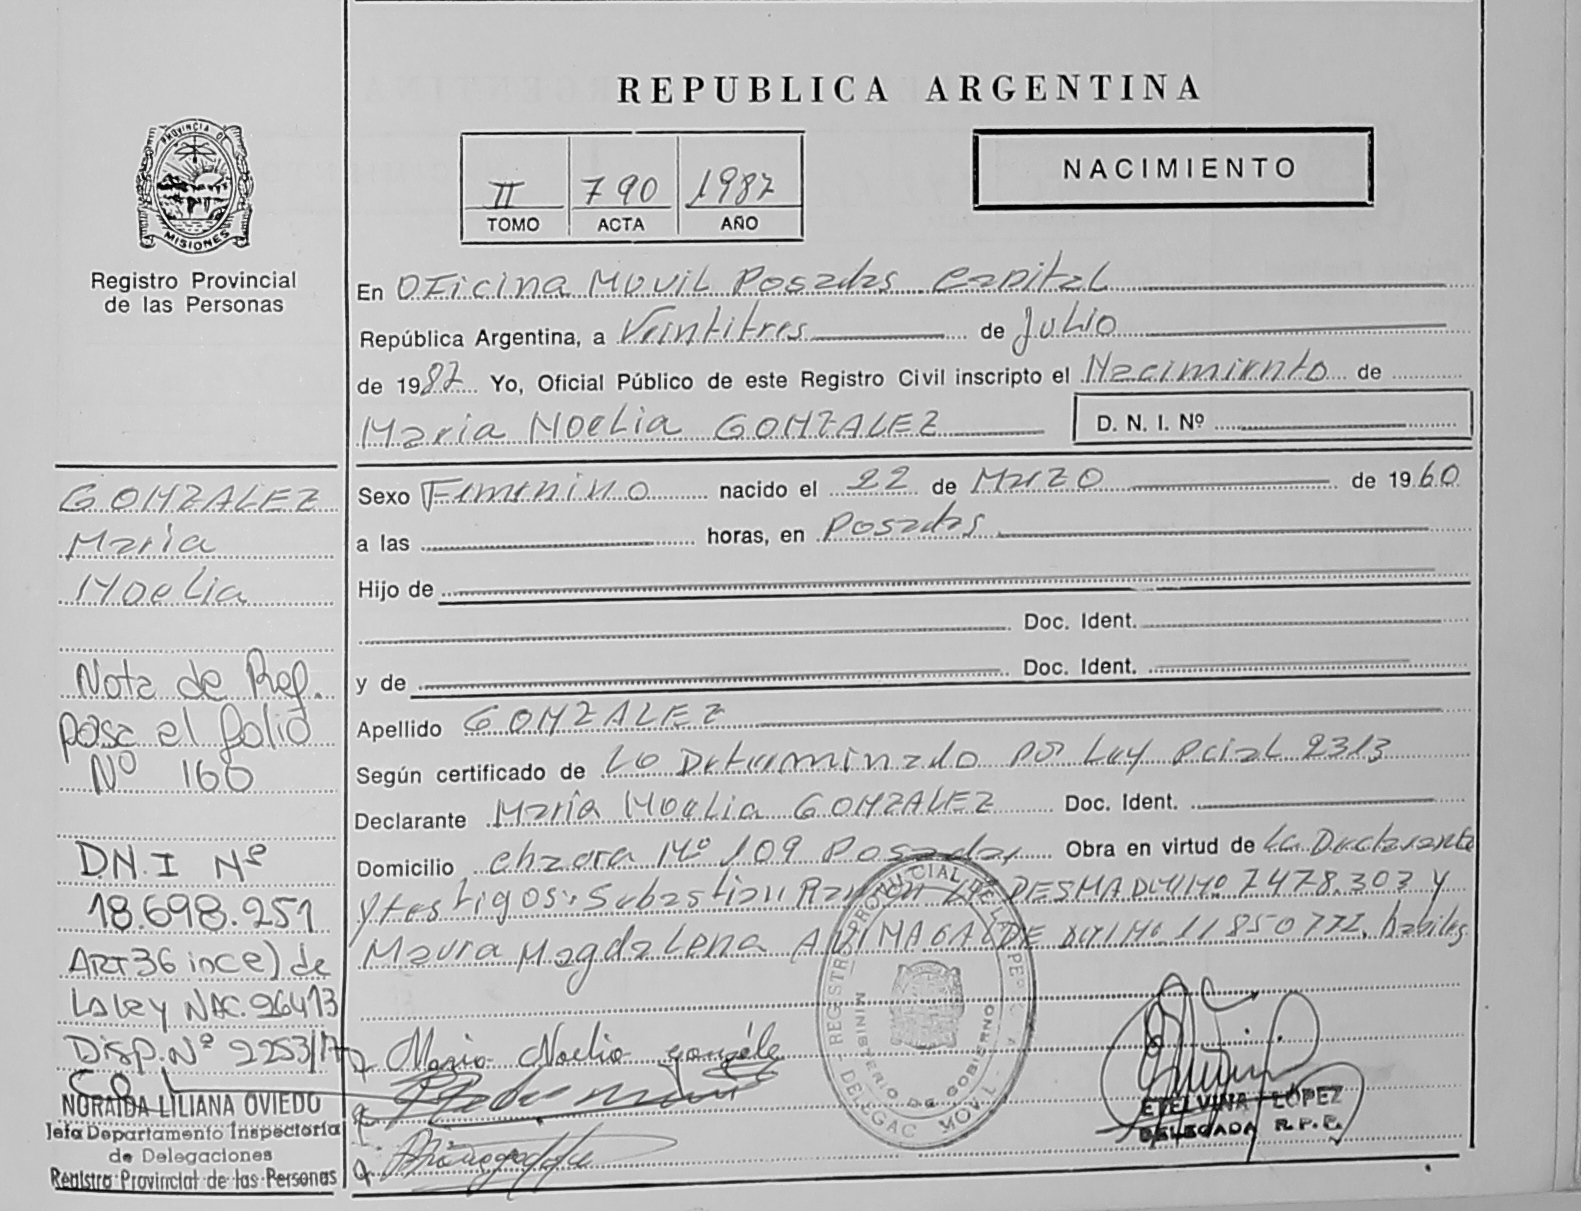 REPUBLICA ARGENTINA
PROVINCIA DE
MISIONES
Registro Provincial
de las Personas
II 790 1987
TOMO ACTA AÑO
NACIMIENTO
En Oficina Movil Posadas Capital
República Argentina, a Veintitres de Julio
de 1987 Yo, Oficial Público de este Registro Civil inscripto el Nacimiento de
Maria Noelia GONZALEZ D. N. I. Nº
Sexo Femenino nacido el 22 de Marzo de 1960
a las horas, en Posadas
Hijo de
Doc. Ident.
y de Doc. Ident.
Apellido GONZALEZ
Según certificado de Lo Determinado por Ley Pcial 2313
Declarante María Noelia GONZALEZ Doc. Ident.
Domicilio chacra Nº 109 Posadas Obra en virtud de La Declarante
y testigos: Sebastian Ramon LEDESMA DNI Nº 7478.303 y
Maura Magdalena DNI Nº 11850772, habiles
Maria Noelia González
REGISTRO PROVINCIAL DE LAS PERS.
MINISTERIO DE GOBIERNO
DELEGAC. MOVIL
ETELVINA LÓPEZ
DELEGADA R.P.P.
GONZALEZ
Maria
Noelia
Nota de Ref.
pasa el folio
Nº 160
D.N.I Nº
18.698.251
ART 36 inc e) de
La Ley NAC. 26413
Disp. Nº 2253/17
NORAIDA LILIANA OVIEDO
Jefa Departamento Inspectoría
de Delegaciones
Registro Provincial de las Personas